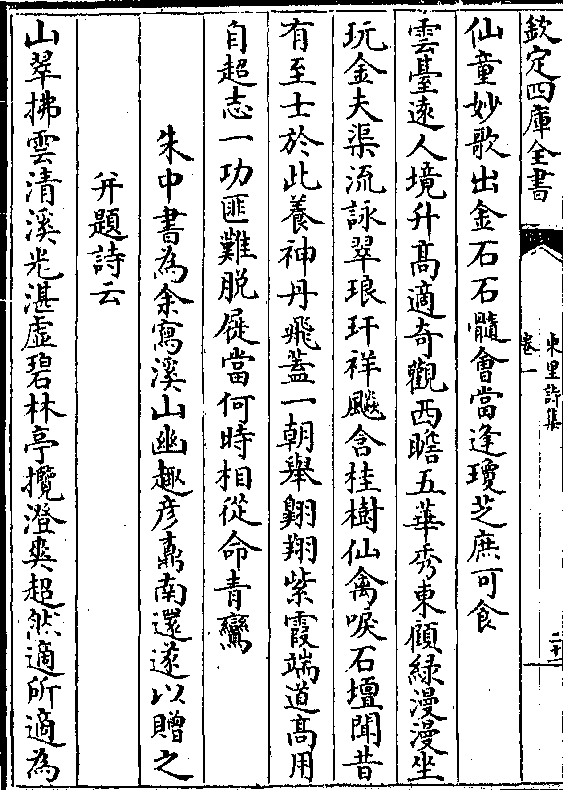 欽定四庫全書
東里詩集
卷一
二十一
仙童妙歌出金石石髓會當逢瓊芝庶可食
雲臺遠人境升髙適竒觀西瞻五華秀東顧緑漫漫坐
玩金夫渠流詠翠琅玕祥飈含桂樹仙禽唳石壇聞昔
有至士於此養神丹飛葢一朝舉翺翔紫霞端道髙用
自超志一功匪難脱屣當何時相從命青鸞
朱中書為余寫溪山幽趣彦鼒南還遂以贈之
并題詩云
山翠拂雲清溪光湛虚碧林亭攬澄爽超然適所適為